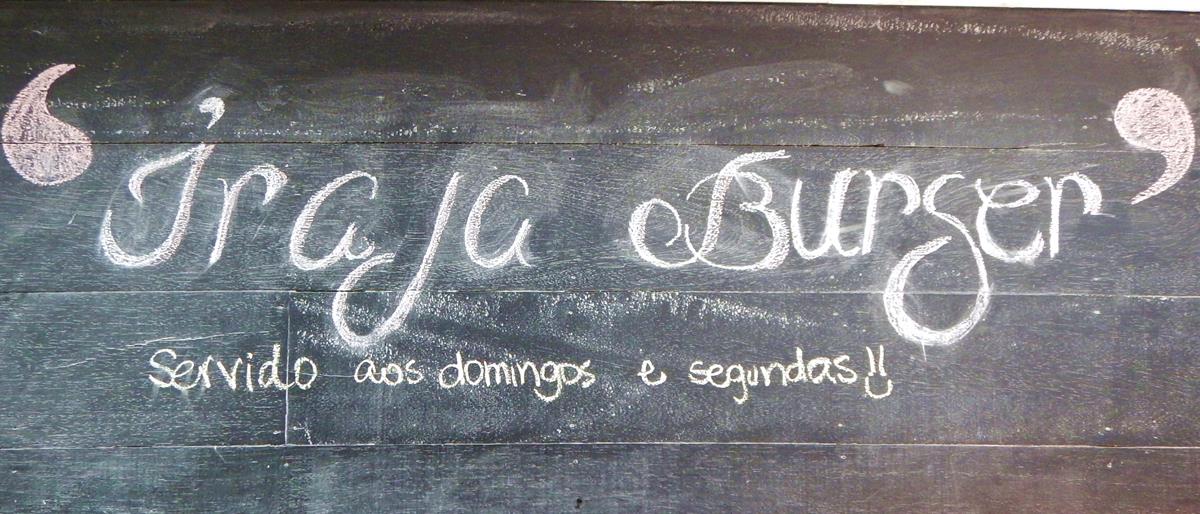 ‘Iraja Burger’
Servido aos domingos e segundas!!